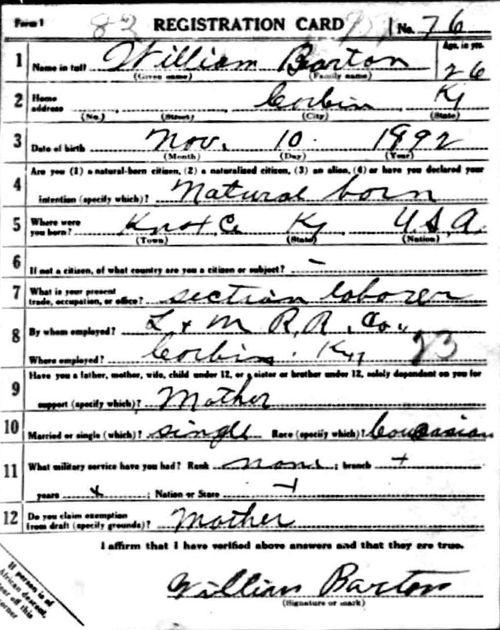 Form 1 REGISTRATION CARD No. 76
1 Name in full William Barton Age, in yrs. 26
(Given name) (Family name)
2 Home address Corbin Ky
(No.) (Street) (City) (State)
3 Date of birth Nov. 10 1892
(Month) (Day) (Year)
Are you (1) a natural-born citizen, (2) a naturalized citizen, (3) an alien, (4) or have you declared your
4 intention (specify which)? Natural born
5 Where were you born? Knox Co Ky U.S.A.
(Town) (State) (Nation)
6 If not a citizen, of what country are you a citizen or subject? -
7 What is your present trade, occupation, or office? section laborer
8 By whom employed? L + M R.R. Co.
Where employed? Corbin. Ky 23
Have you a father, mother, wife, child under 12, or a sister or brother under 12, solely dependent on you for
9 support (specify which)? Mother
10 Married or single (which)? single Race (specify which)? Coucasian
11 What military service have you had? Rank none ; branch +
years x ; Nation or State +
12 Do you claim exemption from draft (specify grounds)? Mother
I affirm that I have verified above answers and that they are true.
William Barton
(Signature or mark)
If person is of
African descent,
tear off this
corner